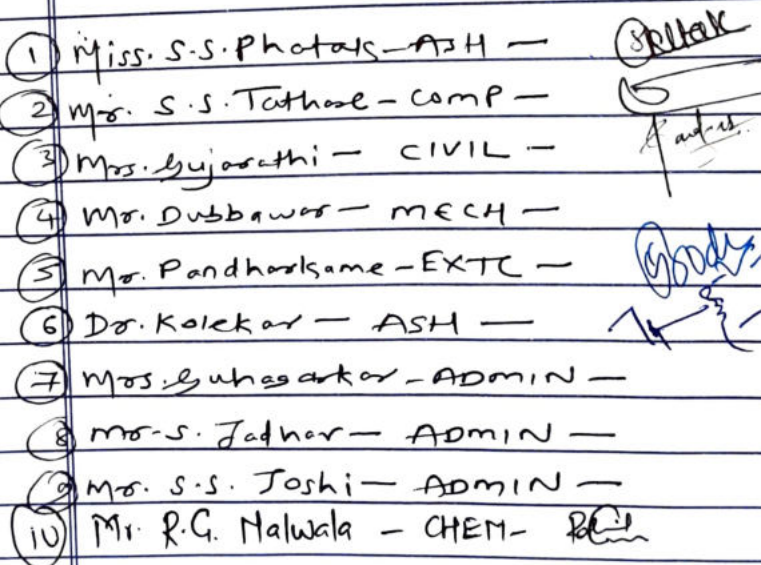 1 Miss. S.S. Phatak - ASH -
2 Mr. S.S. Tathase - COMP -
3 Mrs. Gujarathi - CIVIL -
4 Mr. Dubbawar - MECH -
5 Mr. Pandharkame - EXTC -
6 Dr. Kolekar - ASH -
7 Mrs. Guhagarkar - ADMIN -
8 Mr. S. Jadhav - ADMIN -
9 Mr. S.S. Joshi - ADMIN -
10 Mr. R.G. Nalwala - CHEM -